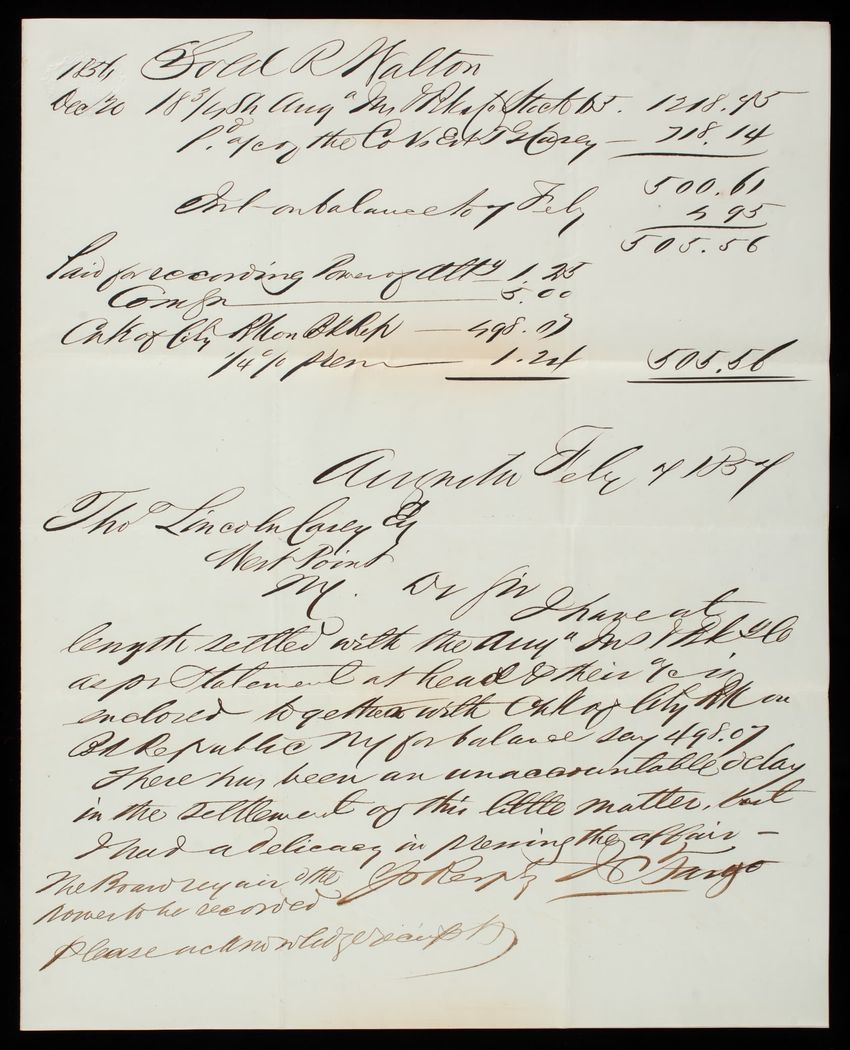 1856 Sold R Walton
Dec 20 18 3/4 Sh Aug.a Ins & Bk Co Stock 65. 1218.75
P.d a/c of the Co vs Est T G Casey — 718.14
500.61
Int on balance to 7 Feby 4 95
505.56
Paid for recording Power of Att'y — 1.25
Comsn — 5.00
Chk of City Bk on Bk Rep — 498.07
1/4 % prem — 1.24 505.56
Augusta Feby 7 1857
Thos Lincoln Casey Esq
West Point
NY. Dr Sir I have at
length settled with the Aug.a Ins & Bkg Co
as pr Statement at head & their a/c is
enclosed together with Chk of City Bk on
Bk Republic NY for balance say 498.07
There has been an unaccountable delay
in the settlement of this little matter, but
I had a delicacy in pressing the affair —
Yr Resply Fargo
The Board required the
Power to be recorded
Please acknowledge receipt